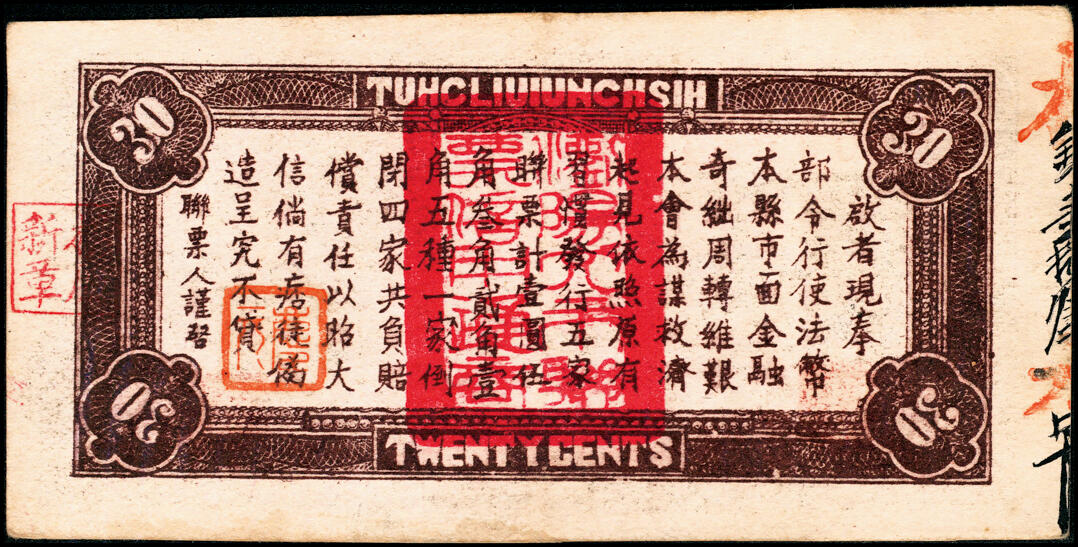 TUHCLIUIUNCHSIH
30
30
啟者現奉
部令行使法幣
本縣市面金融
奇絀周轉維艱
本會為謀救濟
起見依照原有
習慣發行五家
聯票計壹圓伍
角叁角貳角壹
角五種一家倒
閉四家共負賠
償責任以昭大
信倘有痞徒偽
造呈究不貸
聯票人謹啓
新章
30
30
TWENTYCENTS